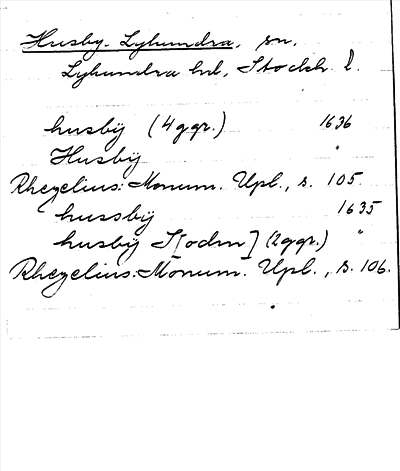 Husby-Lyhundra, sn,
Lyhundra hd, Stockh. l.
husbÿ (4 ggr.) 1636
Husbÿ "
Rhezelius: Monum. Upl., s. 105.
hussbÿ 1635
husbÿ S[odm] (2 ggr.) "
Rhezelius: Monum. Upl., s. 106.